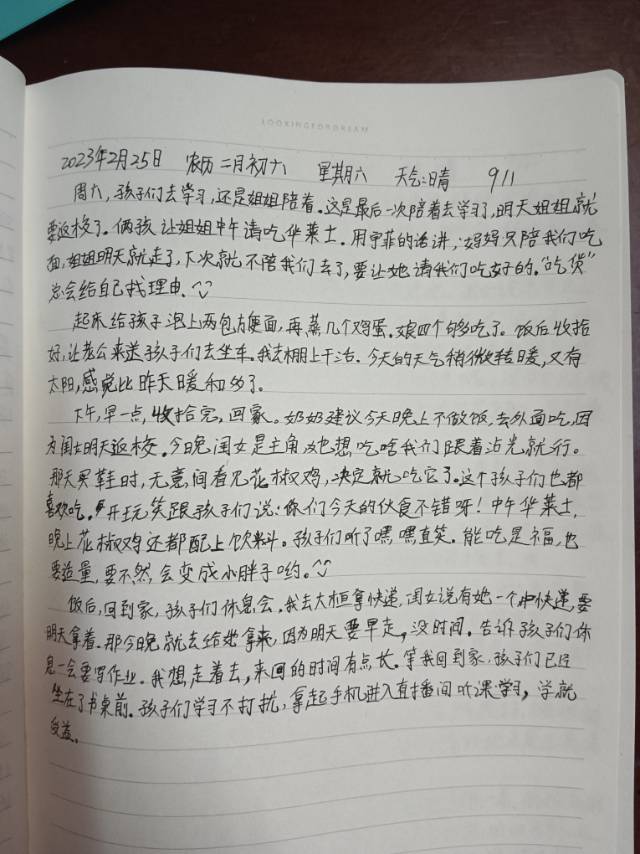 LOOKINGFORDREAM
2023年2月25日 农历二月初六 星期六 天气:晴 911
周六,孩子们去学习,还是姐姐陪着.这是最后一次陪着去学习了,明天姐姐就
要返校了.俩孩让姐姐中午请吃华莱士.用宇菲的话讲,:妈妈只陪我们吃
面,姐姐明天就走了,下次就不陪我们去了,要让她请我们吃好的."吃货"
总会给自己找理由.
起床给孩子泡上两包方便面,再蒸几个鸡蛋.娘四个够吃了.饭后收拾
好,让老公来送孩子们去坐车.我去棚上干活.今天的天气稍微转暖,又有
太阳,感觉比昨天暖和多了.
下午,早一点,收拾完,回家.奶奶建议今天晚上不做饭,去外面吃,因
为闺女明天返校.今晚,闺女是主角,她想吃啥我们跟着沾光就行.
那天买鞋时,无意间看见花椒鸡,决定就吃它了.这个孩子们也都
喜欢吃.开玩笑跟孩子们说:你们今天的伙食不错呀!中午华莱士,
晚上花椒鸡还都配上饮料。孩子们听了嘿嘿直笑.能吃是福,也
要适量,要不然,会变成小胖子哟。
饭后,回到家,孩子们休息会.我去大桓拿快递,闺女说有她一个快递,要
明天拿着.那今晚就去给她拿来,因为明天要早走,没时间.告诉孩子们休
息一会要写作业.我想走着去,来回的时间有点长.等我回到家,孩子们已经
坐在了书桌前.孩子们学习不打扰,拿起手机进入直播间听课学习,学就
受益.